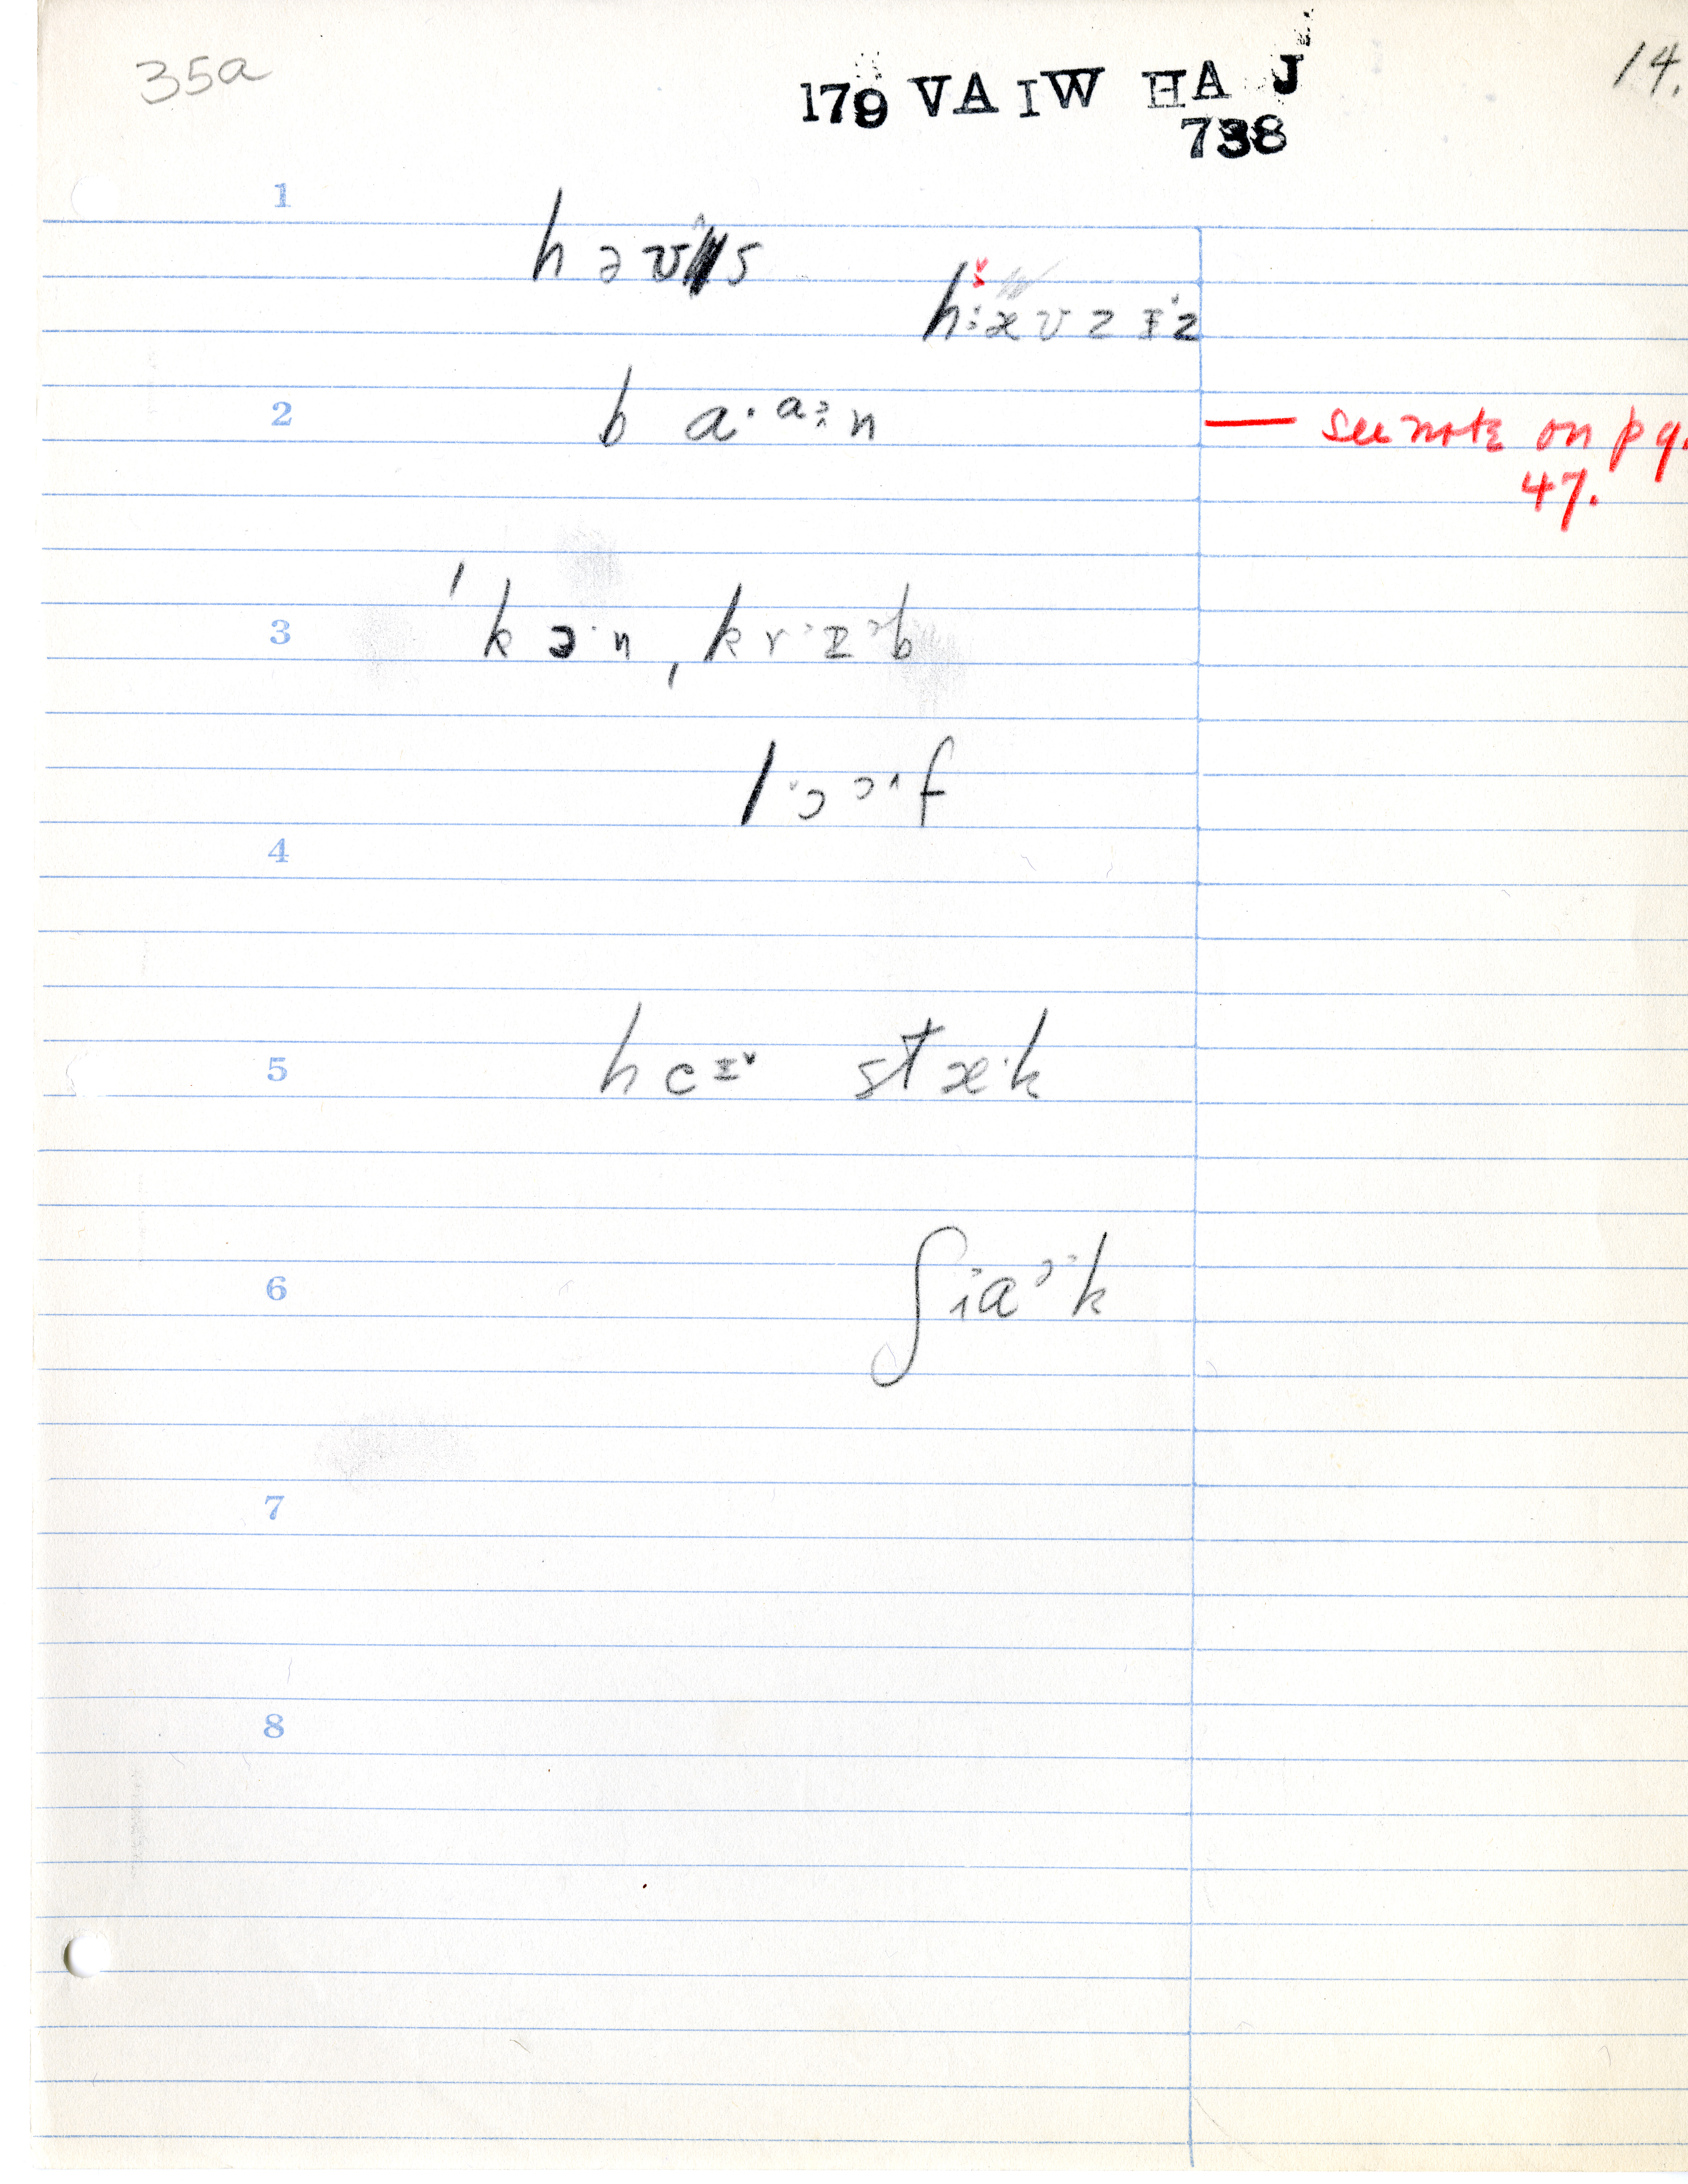 35a
179 VA IW HA J
14.
738
1
h ə v s
h æ v z ɪ z
2
b a· aː n
— see note on pg.
47.
3
ˈk ə· n ˌk r ɪ b
l ɔ ɔ f
4
5
h c ɪ st æ· k
6
ʃ i a ɔ k
7
8